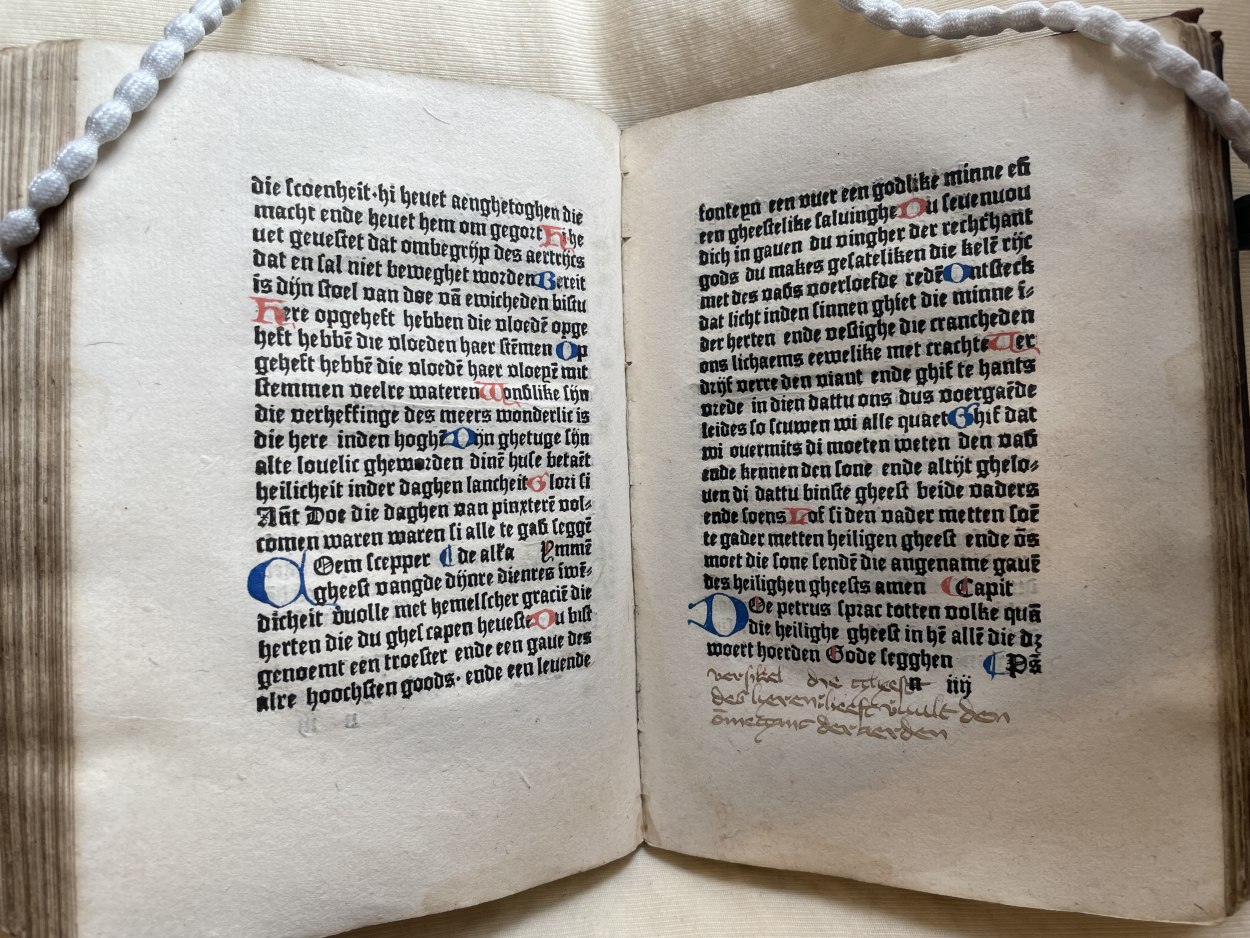 die scoenheit·hi heuet aenghetoghen die
macht ende heuet hem om gegort Hi he
uet geuestet dat ombegrijp des aertrijcs
dat en sal niet beweghet worden Bereit
is dijn stoel van doe vā ewicheden bistu
Here opgeheft hebben die vloedē opge
heft hebbē die vloeden haer stēmen Op
geheft hebbē die vloedē haer vloeyē mit
stemmen veelre wateren Wonðlike sijn
die verheffinge des meers wonderlic is
die here inden hoghē Dijn ghetuge sijn
alte louelic gheworden dinē huse betaēt
heilicheit inder daghen lancheit Glori si
Ant̄ Doe die daghen van pinxterē vol⸗
comen waren waren si alle te gað seggē
COem scepper de alra Ymmē
gheest vangde dijnre dienres swē⸗
dicheit vuolle met hemelscher graciē die
herten die du ghescapen heueste Du bist
genoemt een troester ende een gaue des
alre hoochsten goods· ende een leuende
fonteyn een vuer een godlike minne eñ
een gheestelike saluinghe Du seuenuou
dich in gauen du vingher der rechterhant
gods du makes gesateliken die kelē rijc
met des vaðs voerloefde redē Ontsteck
dat licht inden sinnen ghiet die minne ī⸗
der herten ende vestighe die crancheden
ons lichaems eewelike met crachte Ver
drijf verre den viant ende ghif te hants
vrede in dien dattu ons dus voergaēde
leides so scuwen wi alle quaet Ghif dat
wi ouermits di moeten weten den vað
ende kennen den sone ende altijt ghelo⸗
uen di dattu binste gheest beide vaders
ende soens Lof si den vader metten soē
te gader metten heiligen gheest ende ōs
moet die sone sendē die angename gauē
des heilighen gheests amen Capit
DOe petrus sprac totten volke quā
die heilighe gheest in hē allē die dꝫ
woert hoerden Gode segghen Ps̄
versikel die gheest
n iiij
des heren heeft vuult den
ōmeganc der eerden